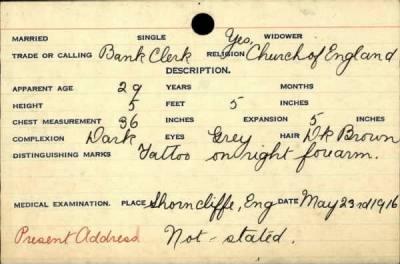 MARRIED SINGLE Yes, WIDOWER
TRADE OR CALLING Bank Clerk RELIGION Church of England
DESCRIPTION.
APPARENT AGE 29 YEARS MONTHS
HEIGHT 5 FEET 5 INCHES
CHEST MEASUREMENT 36 INCHES EXPANSION 5 INCHES
COMPLEXION Dark EYES Grey HAIR Dk Brown
DISTINGUISHING MARKS Tattoo on right forearm.
MEDICAL EXAMINATION. PLACE Shorncliffe, Eng DATE May 23rd 1916
Present Address Not-stated.